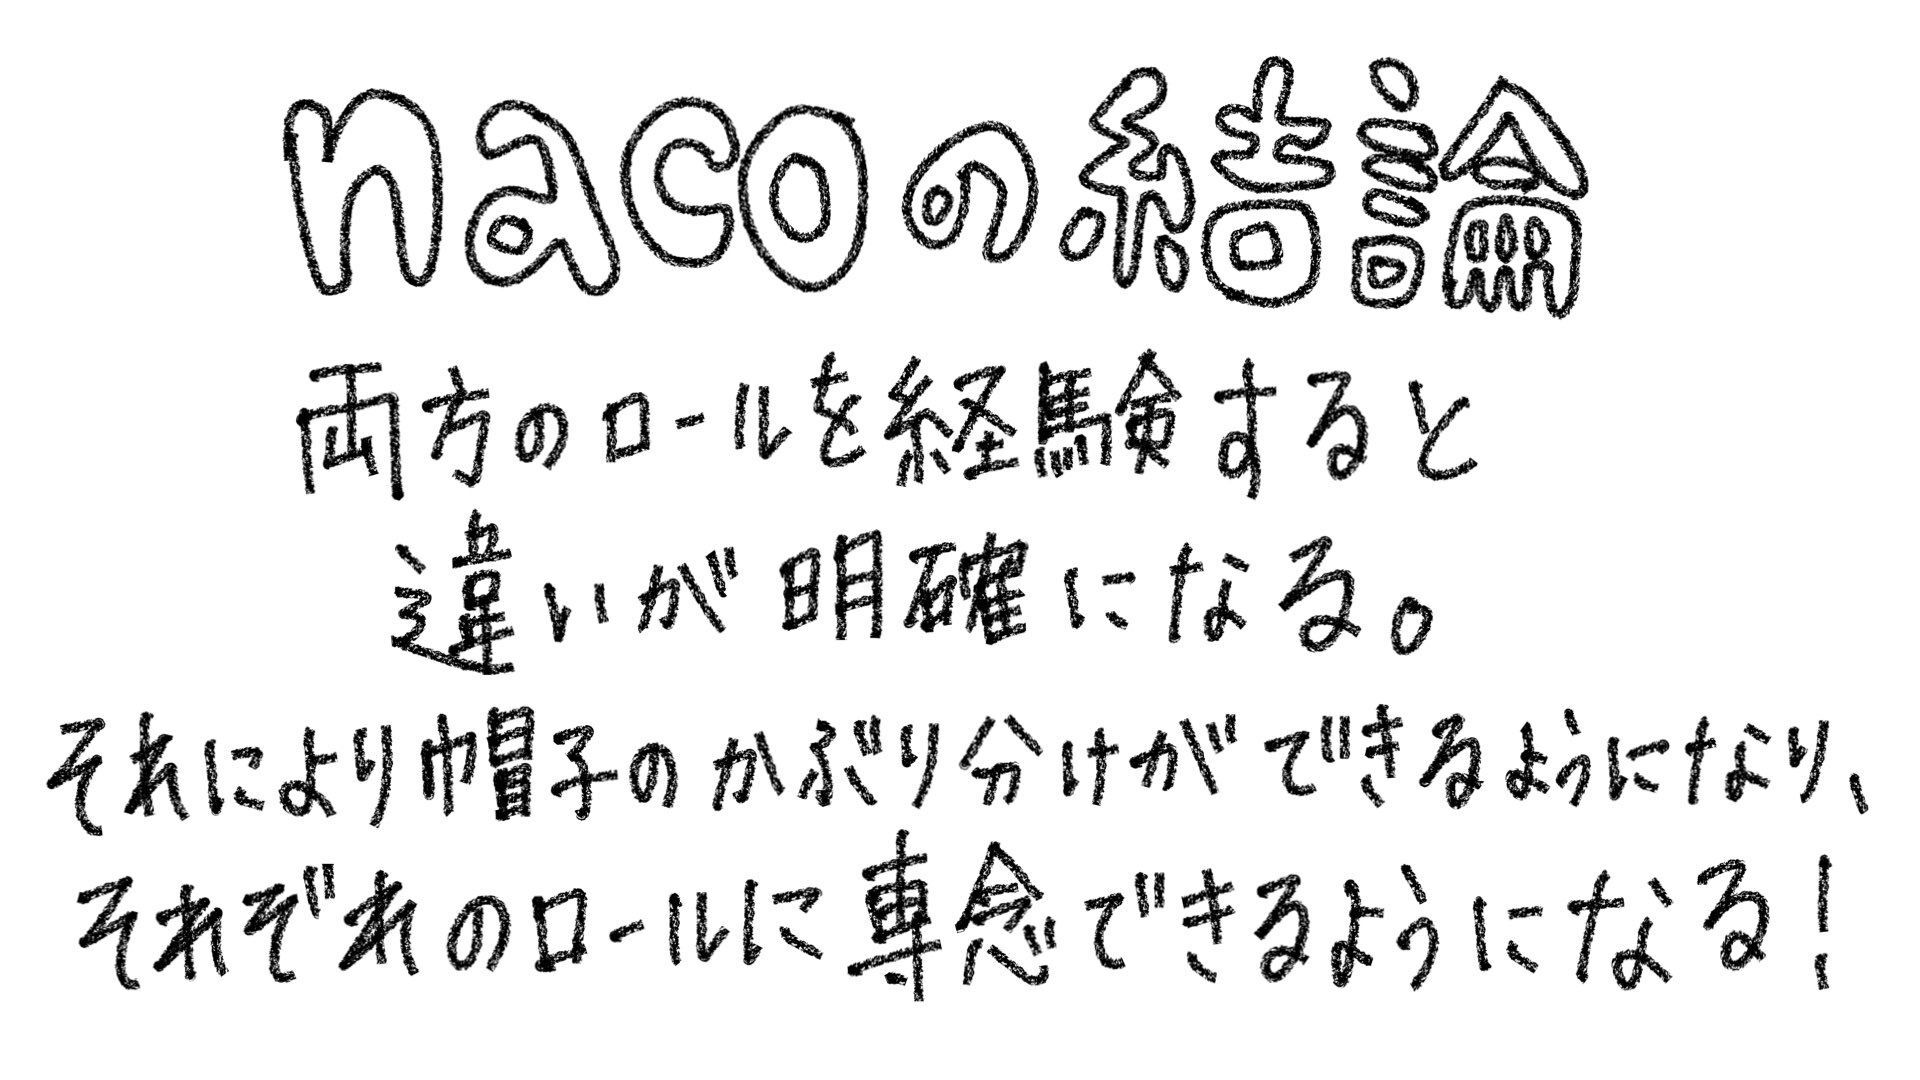 nacoの結論
両方のロールを経験すると
違いが明確になる。
それにより帽子のかぶり分けができるようになり、
それぞれのロールに専念できるようになる！